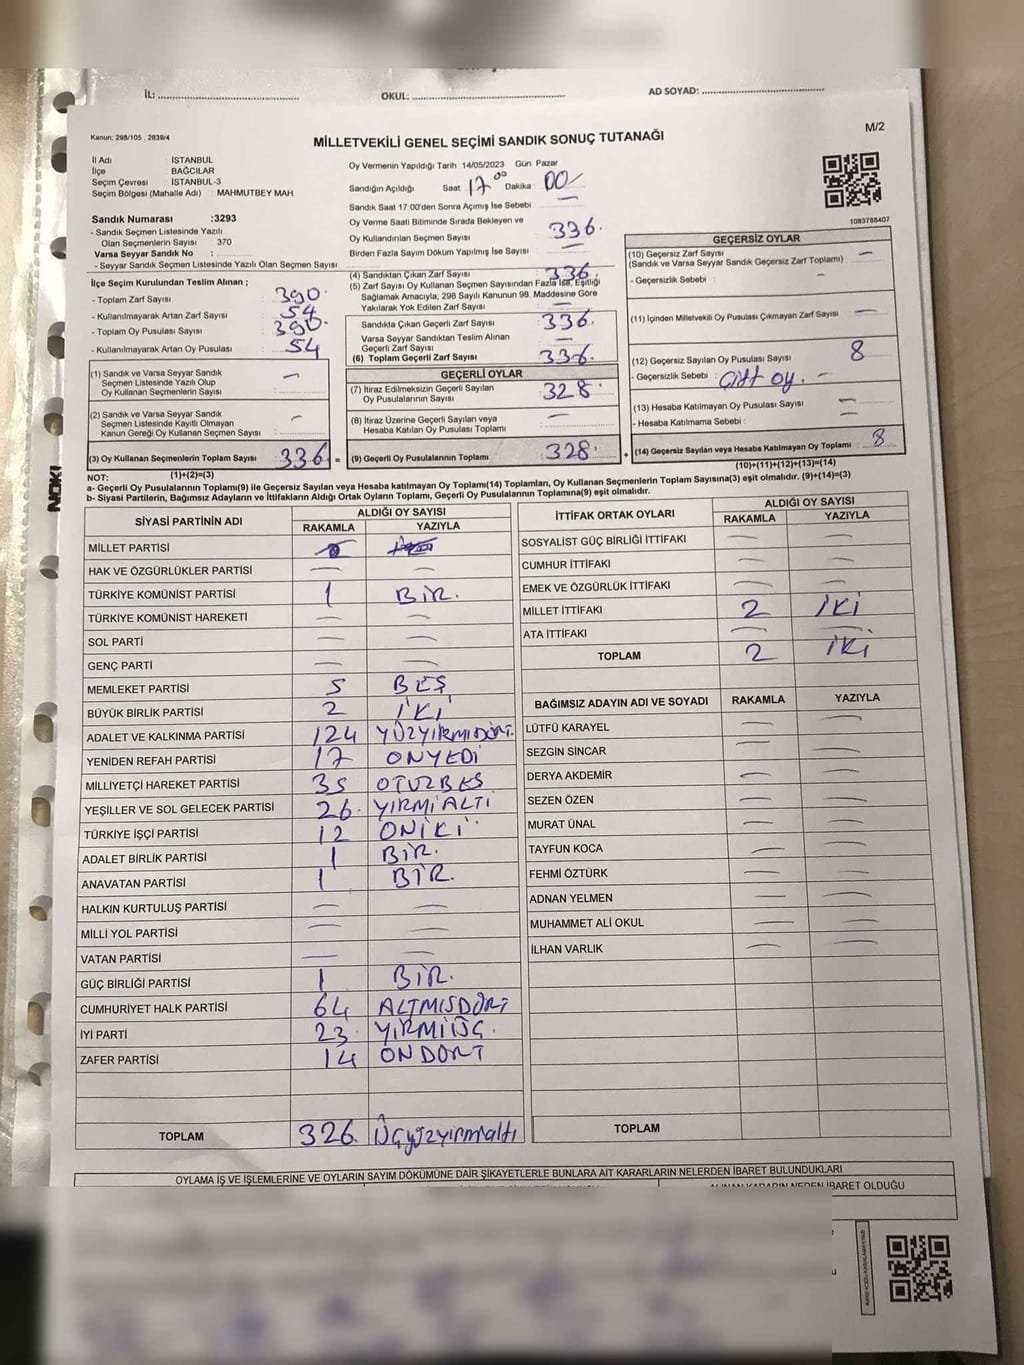 İL: OKUL: AD SOYAD:
Kanun; 298/105 , 2839/4
MİLLETVEKİLİ GENEL SEÇİMİ SANDIK SONUÇ TUTANAĞI
M/2
İl Adı İSTANBUL
İlçe BAĞCILAR
Seçim Çevresi İSTANBUL-3
Seçim Bölgesi (Mahalle Adı) : MAHMUTBEY MAH
Sandık Numarası :3293
- Sandık Seçmen Listesinde Yazılı
Olan Seçmenlerin Sayısı : 370
Varsa Seyyar Sandık No :
- Seyyar Sandık Seçmen Listesinde Yazılı Olan Seçmen Sayısı:
İlçe Seçim Kurulundan Teslim Alınan ;
- Toplam Zarf Sayısı : 390
- Kullanılmayarak Artan Zarf Sayısı : 54
- Toplam Oy Pusulası Sayısı : 390
- Kullanılmayarak Artan Oy Pusulası : 54
(1) Sandık ve Varsa Seyyar Sandık
Seçmen Listesinde Yazılı Olup
Oy Kullanan Seçmenlerin Sayısı : —
(2) Sandık ve Varsa Seyyar Sandık
Seçmen Listesinde Kayıtlı Olmayan
Kanun Gereği Oy Kullanan Seçmen Sayısı : —
(3) Oy Kullanan Seçmenlerin Toplam Sayısı : 336 =
(1)+(2)=(3)
Oy Vermenin Yapıldığı Tarih 14/05/2023 Gün: Pazar
Sandığın Açıldığı Saat 17 00 Dakika 00
Sandık Saat 17:00'den Sonra Açımış İse Sebebi : —
Oy Verme Saati Bitiminde Sırada Bekleyen ve
Oy Kullandırılan Seçmen Sayısı : 336.
Birden Fazla Sayım Döküm Yapılmış İse Sayısı : —
(4) Sandıktan Çıkan Zarf Sayısı : 336.
(5) Zarf Sayısı Oy Kullanan Seçmen Sayısından Fazla İse, Eşitliği
Sağlamak Amacıyla, 298 Sayılı Kanunun 98. Maddesine Göre
Yakılarak Yok Edilen Zarf Sayısı : —
Sandıkta Çıkan Geçerli Zarf Sayısı : 336.
Varsa Seyyar Sandıktan Teslim Alınan
Geçerli Zarf Sayısı : —
(6) Toplam Geçerli Zarf Sayısı : 336.
GEÇERLİ OYLAR
(7) İtiraz Edilmeksizin Geçerli Sayılan
Oy Pusulalarının Sayısı : 328.
(8) İtiraz Üzerine Geçerli Sayılan veya
Hesaba Katılan Oy Pusulası Toplamı : —
(9) Geçerli Oy Pusulalarının Toplamı : 328. +
1083788407
GEÇERSİZ OYLAR
(10) Geçersiz Zarf Sayısı : —
(Sandık ve Varsa Seyyar Sandık Geçersiz Zarf Toplamı)
- Geçersizlik Sebebi : —
(11) İçinden Milletvekili Oy Pusulası Çıkmayan Zarf Sayısı : —
(12) Geçersiz Sayılan Oy Pusulası Sayısı : 8
- Geçersizlik Sebebi : Çift oy. —
(13) Hesaba Katılmayan Oy Pusulası Sayısı : —
- Hesaba Katılmama Sebebi : —
(14) Geçersiz Sayılan veya Hesaba Katılmayan Oy Toplamı : 8
(10)+(11)+(12)+(13)=(14)
NOT:
a- Geçerli Oy Pusulalarının Toplamı(9) ile Geçersiz Sayılan veya Hesaba katılmayan Oy Toplamı(14) Toplamları, Oy Kullanan Seçmenlerin Toplam Sayısına(3) eşit olmalıdır. (9)+(14)=(3)
b- Siyasi Partilerin, Bağımsız Adayların ve İttifakların Aldığı Ortak Oyların Toplamı, Geçerli Oy Pusulalarının Toplamına(9) eşit olmalıdır.
NOKI
SİYASİ PARTİNİN ADI ALDIĞI OY SAYISI
RAKAMLA YAZIYLA
MİLLET PARTİSİ
HAK VE ÖZGÜRLÜKLER PARTİSİ — —
TÜRKİYE KOMÜNİST PARTİSİ 1 BİR.
TÜRKİYE KOMÜNİST HAREKETİ — —
SOL PARTİ — —
GENÇ PARTİ — —
MEMLEKET PARTİSİ 5 BEŞ
BÜYÜK BİRLİK PARTİSİ 2 İKİ
ADALET VE KALKINMA PARTİSİ 124 YÜZYİRMİDÖRT.
YENİDEN REFAH PARTİSİ 17 ONYEDİ
MİLLİYETÇİ HAREKET PARTİSİ 35 OTUZBEŞ
YEŞİLLER VE SOL GELECEK PARTİSİ 26. YIRMİALTI
TÜRKİYE İŞÇİ PARTİSİ 12 ONİKİ
ADALET BİRLİK PARTİSİ 1 BİR.
ANAVATAN PARTİSİ 1 BİR.
HALKIN KURTULUŞ PARTİSİ — —
MİLLİ YOL PARTİSİ — —
VATAN PARTİSİ — —
GÜÇ BİRLİĞİ PARTİSİ 1 BİR.
CUMHURİYET HALK PARTİSİ 64 ALTMIŞDÖRT
İYİ PARTİ 23. YIRMİÜÇ.
ZAFER PARTİSİ 14 ONDÖRT
TOPLAM 326. Üçyüzyirmialtı
İTTİFAK ORTAK OYLARI ALDIĞI OY SAYISI
RAKAMLA YAZIYLA
SOSYALİST GÜÇ BİRLİĞİ İTTİFAKI — —
CUMHUR İTTİFAKI — —
EMEK VE ÖZGÜRLÜK İTTİFAKI — —
MİLLET İTTİFAKI 2 İKİ
ATA İTTİFAKI — —
TOPLAM 2 İKİ
BAĞIMSIZ ADAYIN ADI VE SOYADI RAKAMLA YAZIYLA
LÜTFÜ KARAYEL — —
SEZGİN SİNCAR — —
DERYA AKDEMİR — —
SEZEN ÖZEN — —
MURAT ÜNAL — —
TAYFUN KOCA — —
FEHMİ ÖZTÜRK — —
ADNAN YELMEN — —
MUHAMMET ALİ OKUL — —
İLHAN VARLIK — —
TOPLAM
OYLAMA İŞ VE İŞLEMLERİNE VE OYLARIN SAYIM DÖKÜMÜNE DAİR ŞİKAYETLERLE BUNLARA AİT KARARLARIN NELERDEN İBARET BULUNDUKLARI
ALINAN KARARIN NEDEN İBARET OLDUĞU